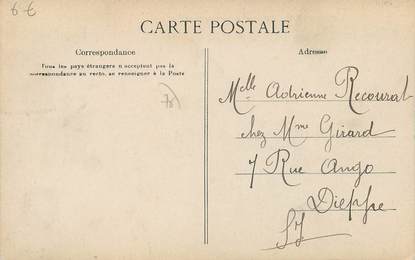 6 €
CARTE POSTALE
Correspondance
Tous les pays étrangers n'acceptent pas la
correspondance au recto, se renseigner à la Poste
78
Adresse
Melle Adrienne Recourat
chez Mme Girard
7 Rue Ango
Dieppe
SI